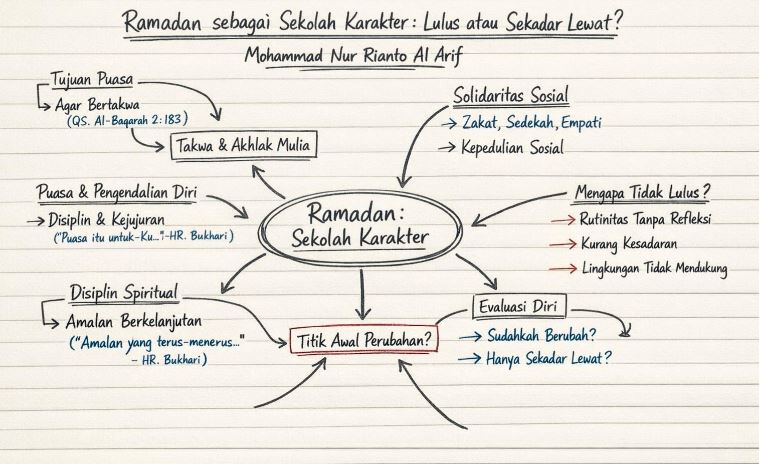 Ramadan sebagai Sekolah Karakter: Lulus atau Sekadar Lewat?
Mohammad Nur Rianto Al Arif
Tujuan Puasa
Agar Bertakwa
(QS. Al-Baqarah 2:183)
Takwa & Akhlak Mulia
Solidaritas Sosial
→ Zakat, Sedekah, Empati
→ Kepedulian Sosial
Puasa & Pengendalian Diri
→ Disiplin & Kejujuran
("Puasa itu untuk-Ku..."-HR. Bukhari)
Ramadan:
Sekolah Karakter
Mengapa Tidak Lulus?
→ Rutinitas Tanpa Refleksi
→ Kurang Kesadaran
→ Lingkungan Tidak Mendukung
Disiplin Spiritual
Amalan Berkelanjutan
("Amalan yang terus-menerus..."
- HR. Bukhari)
Titik Awal Perubahan?
Evaluasi Diri
→ Sudahkah Berubah?
→ Hanya Sekadar Lewat?